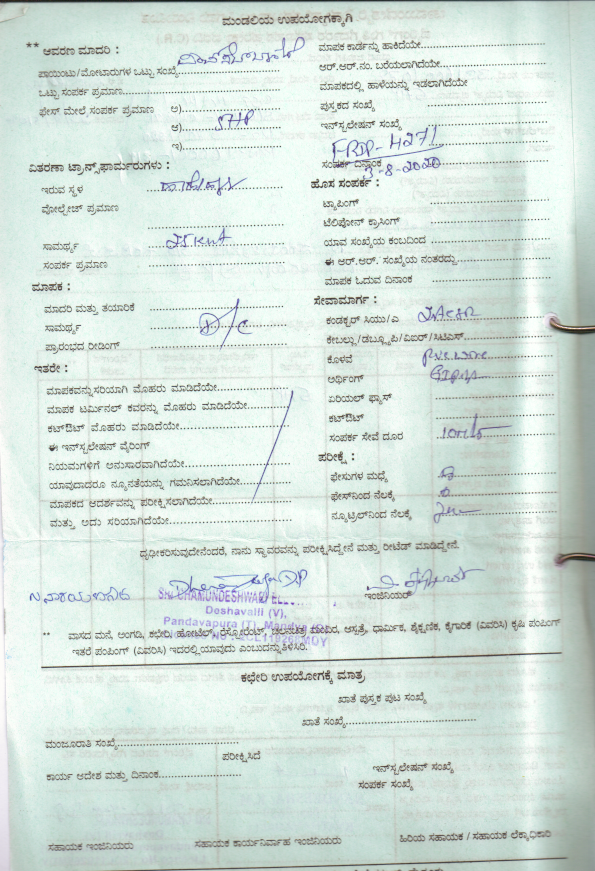 ಮಂಡಲಿಯ ಉಪಯೋಗಕ್ಕಾಗಿ
** ಆವರಣ ಮಾದರಿ :
ಪಾಯಿಂಟು/ಮೋಟಾರುಗಳ ಒಟ್ಟು ಸಂಖ್ಯೆ
ಒಟ್ಟು ಸಂಪರ್ಕ ಪ್ರಮಾಣ
ಫೇಸ್ ಮೇಲೆ ಸಂಪರ್ಕ ಪ್ರಮಾಣ ಅ)
ಆ) 5HP
ಇ)
ವಿತರಣಾ ಟ್ರಾನ್ಸ್‌ಫಾರ್ಮರುಗಳು :
ಇರುವ ಸ್ಥಳ
ವೋಲ್ಟೇಜ್ ಪ್ರಮಾಣ
ಸಾಮರ್ಥ್ಯ
ಸಂಪರ್ಕ ಪ್ರಮಾಣ
ಮಾಪಕ :
ಮಾದರಿ ಮತ್ತು ತಯಾರಿಕೆ
ಸಾಮರ್ಥ್ಯ D/C
ಪ್ರಾರಂಭದ ರೀಡಿಂಗ್
ಇತರೇ :
ಮಾಪಕವನ್ನು ಸರಿಯಾಗಿ ಮೊಹರು ಮಾಡಿದೆಯೇ
ಮಾಪಕ ಟರ್ಮಿನಲ್ ಕವರನ್ನು ಮೊಹರು ಮಾಡಿದೆಯೇ
ಕಟ್‌ಔಟ್ ಮೊಹರು ಮಾಡಿದೆಯೇ
ಈ ಇನ್‌ಸ್ಟಲೇಷನ್ ವೈರಿಂಗ್
ನಿಯಮಗಳಿಗೆ ಅನುಸಾರವಾಗಿದೆಯೇ
ಯಾವುದಾದರೂ ನ್ಯೂನತೆಯನ್ನು ಗಮನಿಸಲಾಗಿದೆಯೇ
ಮಾಪಕದ ಆದರ್ಶವನ್ನು ಪರೀಕ್ಷಿಸಲಾಗಿದೆಯೇ
ಮತ್ತು ಅದು ಸರಿಯಾಗಿದೆಯೇ
ಮಾಪಕ ಕಾರ್ಡನ್ನು ಹಾಕಿದೆಯೇ
ಆರ್.ಆರ್.ನಂ. ಬರೆಯಲಾಗಿದೆಯೇ
ಮಾಪಕದಲ್ಲಿ ಹಾಳೆಯನ್ನು ಇಡಲಾಗಿದೆಯೇ
ಪುಸ್ತಕದ ಸಂಖ್ಯೆ
ಇನ್‌ಸ್ಟಲೇಷನ್ ಸಂಖ್ಯೆ
FBJP-4271
ಸಂಪರ್ಕ ದಿನಾಂಕ 3-8-2020
ಹೊಸ ಸಂಪರ್ಕ :
ಟ್ಯಾಪಿಂಗ್
ಟೆಲಿಫೋನ್ ಕ್ರಾಸಿಂಗ್
ಯಾವ ಸಂಖ್ಯೆಯ ಕಂಬದಿಂದ
ಈ ಆರ್.ಆರ್. ಸಂಖ್ಯೆಯ ನಂತರದ್ದು
ಮಾಪಕ ಓದುವ ದಿನಾಂಕ
ಸೇವಾಮಾರ್ಗ :
ಕಂಡಕ್ಟರ್ ಸಿಯು/ಎ
ಕೇಬಲ್ಲು/ಡಬ್ಲ್ಯೂಪಿ/ವಿಐಆರ್/ಸಿಟಿಎಸ್
ಕೊಳವೆ
ಅರ್ಥಿಂಗ್
ಏರಿಯಲ್ ಫ್ಯೂಸ್
ಕಟ್‌ಔಟ್
ಸಂಪರ್ಕ ಸೇವೆ ದೂರ
ಪರೀಕ್ಷೆ :
ಫೇಸುಗಳ ಮಧ್ಯೆ
ಫೇಸ್‌ನಿಂದ ನೆಲಕ್ಕೆ
ನ್ಯೂಟ್ರಲ್‌ನಿಂದ ನೆಲಕ್ಕೆ
ದೃಢೀಕರಿಸುವುದೇನೆಂದರೆ, ನಾನು ಸ್ಥಾವರವನ್ನು ಪರೀಕ್ಷಿಸಿದ್ದೇನೆ ಮತ್ತು ರೀಟೆಡ್ ಮಾಡಿದ್ದೇನೆ.
ಇಂಜಿನಿಯರ್
SRI CHAMUNDESHWARI
Deshavalli (V),
Pandavapura (T), Mandya
** ವಾಸದ ಮನೆ, ಅಂಗಡಿ, ಕಛೇರಿ, ಹೋಟೆಲ್, ರೆಸ್ಟೋರೆಂಟ್, ಚಲನಚಿತ್ರ ಮಂದಿರ, ಆಸ್ಪತ್ರೆ, ಧಾರ್ಮಿಕ, ಶೈಕ್ಷಣಿಕ, ಕೈಗಾರಿಕೆ (ವಿವರಿಸಿ) ಕೃಷಿ ಪಂಪಿಂಗ್
ಇತರೆ ಪಂಪಿಂಗ್ (ವಿವರಿಸಿ) ಇದರಲ್ಲಿ ಯಾವುದು ಎಂಬುದನ್ನು ತಿಳಿಸಿರಿ.
ಕಛೇರಿ ಉಪಯೋಗಕ್ಕೆ ಮಾತ್ರ
ಖಾತೆ ಪುಸ್ತಕ ಪುಟ ಸಂಖ್ಯೆ
ಖಾತೆ ಸಂಖ್ಯೆ
ಮಂಜೂರಾತಿ ಸಂಖ್ಯೆ
ಪರೀಕ್ಷಿಸಿದೆ
ಕಾರ್ಯ ಆದೇಶ ಮತ್ತು ದಿನಾಂಕ
ಇನ್‌ಸ್ಟಲೇಷನ್ ಸಂಖ್ಯೆ
ಸಂಪರ್ಕ ಸಂಖ್ಯೆ
ಸಹಾಯಕ ಇಂಜಿನಿಯರು
ಸಹಾಯಕ ಕಾರ್ಯನಿರ್ವಾಹ ಇಂಜಿನಿಯರು
ಹಿರಿಯ ಸಹಾಯಕ / ಸಹಾಯಕ ಲೆಕ್ಕಾಧಿಕಾರಿ